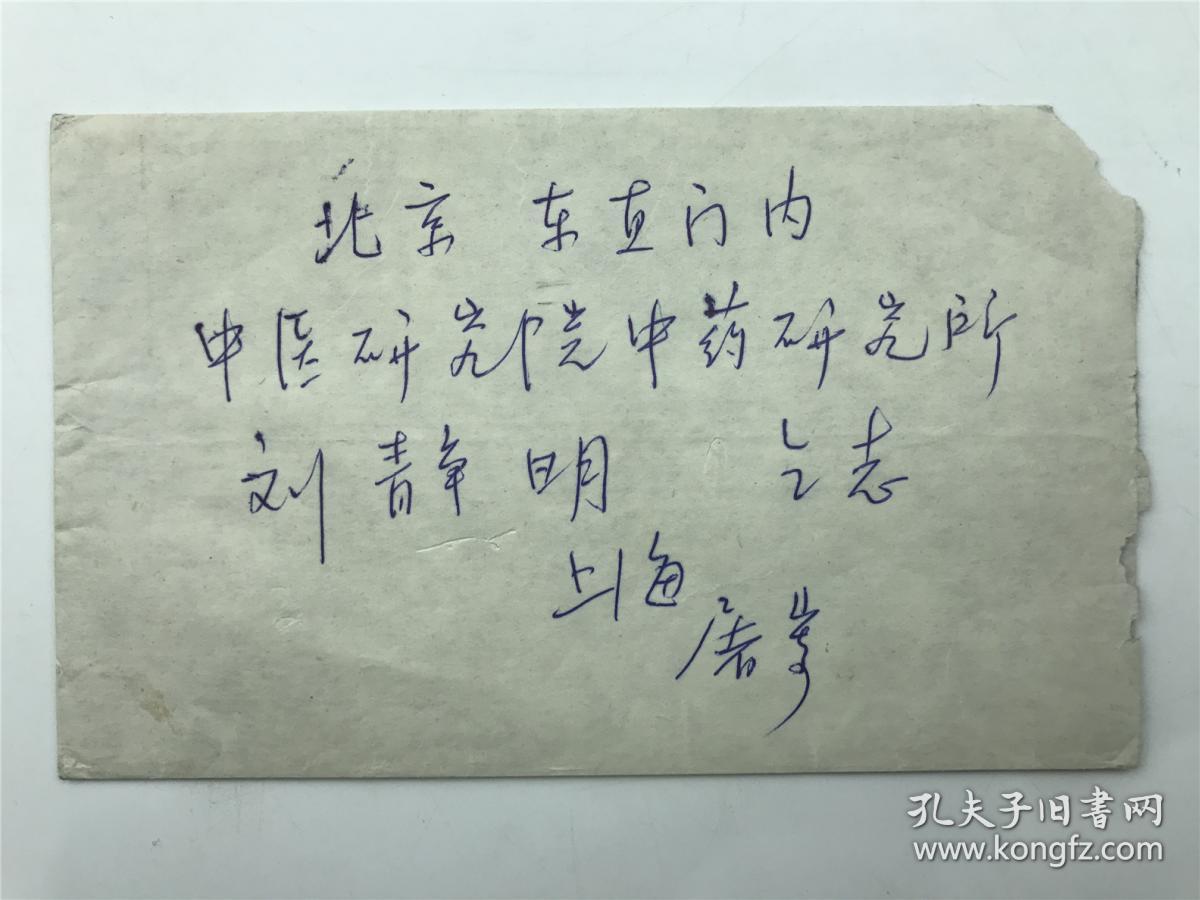 北京 东直门内
中医研究院中药研究所
刘静明 仝志
上海
屠
孔夫子旧书网
www.kongfz.com